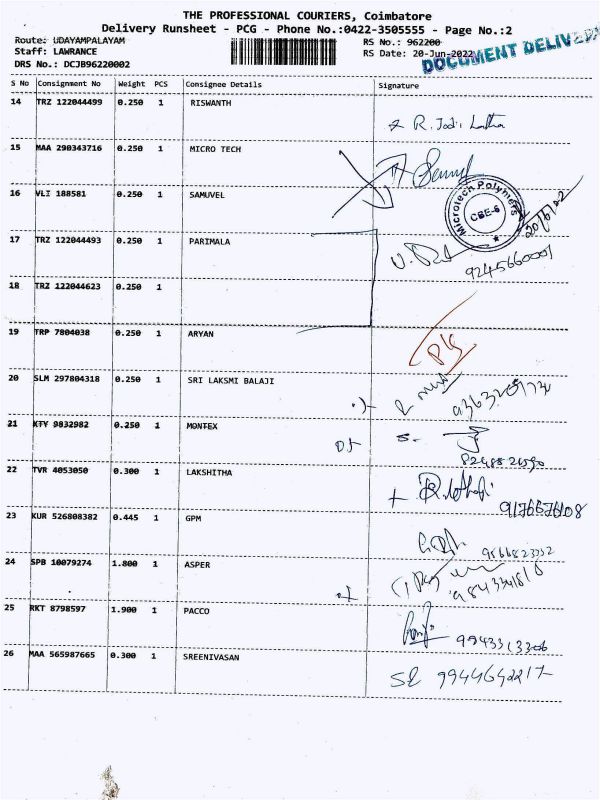 THE PROFESSIONAL COURIERS, Coimbatore
Delivery Runsheet - PCG - Phone No.:0422-3505555 - Page No.:2
Route: UDAYAMPALAYAM RS No.: 962200
Staff: LAWRANCE RS Date: 20-Jun-2022
DRS No.: DCJB96220002
DOCUMENT DELIVERY
S No Consignment No Weight PCS Consignee Details Signature
14 TRZ 122044499 0.250 1 RISWANTH
15 MAA 290343716 0.250 1 MICRO TECH
16 VLI 188581 0.250 1 SAMUVEL
Microtech Polymers
CBE-6
20/6/22
17 TRZ 122044493 0.250 1 PARIMALA
9245660001
18 TRZ 122044623 0.250 1
19 TRP 7804038 0.250 1 ARYAN
20 SLM 297804318 0.250 1 SRI LAKSMI BALAJI
21 KTY 9832982 0.250 1 MONTEX
22 TVR 4053050 0.300 1 LAKSHITHA
23 KUR 526808382 0.445 1 GPM
24 SPB 10079274 1.800 1 ASPER
25 RKT 8798597 1.900 1 PACCO
9943313306
26 MAA 565987665 0.300 1 SREENIVASAN